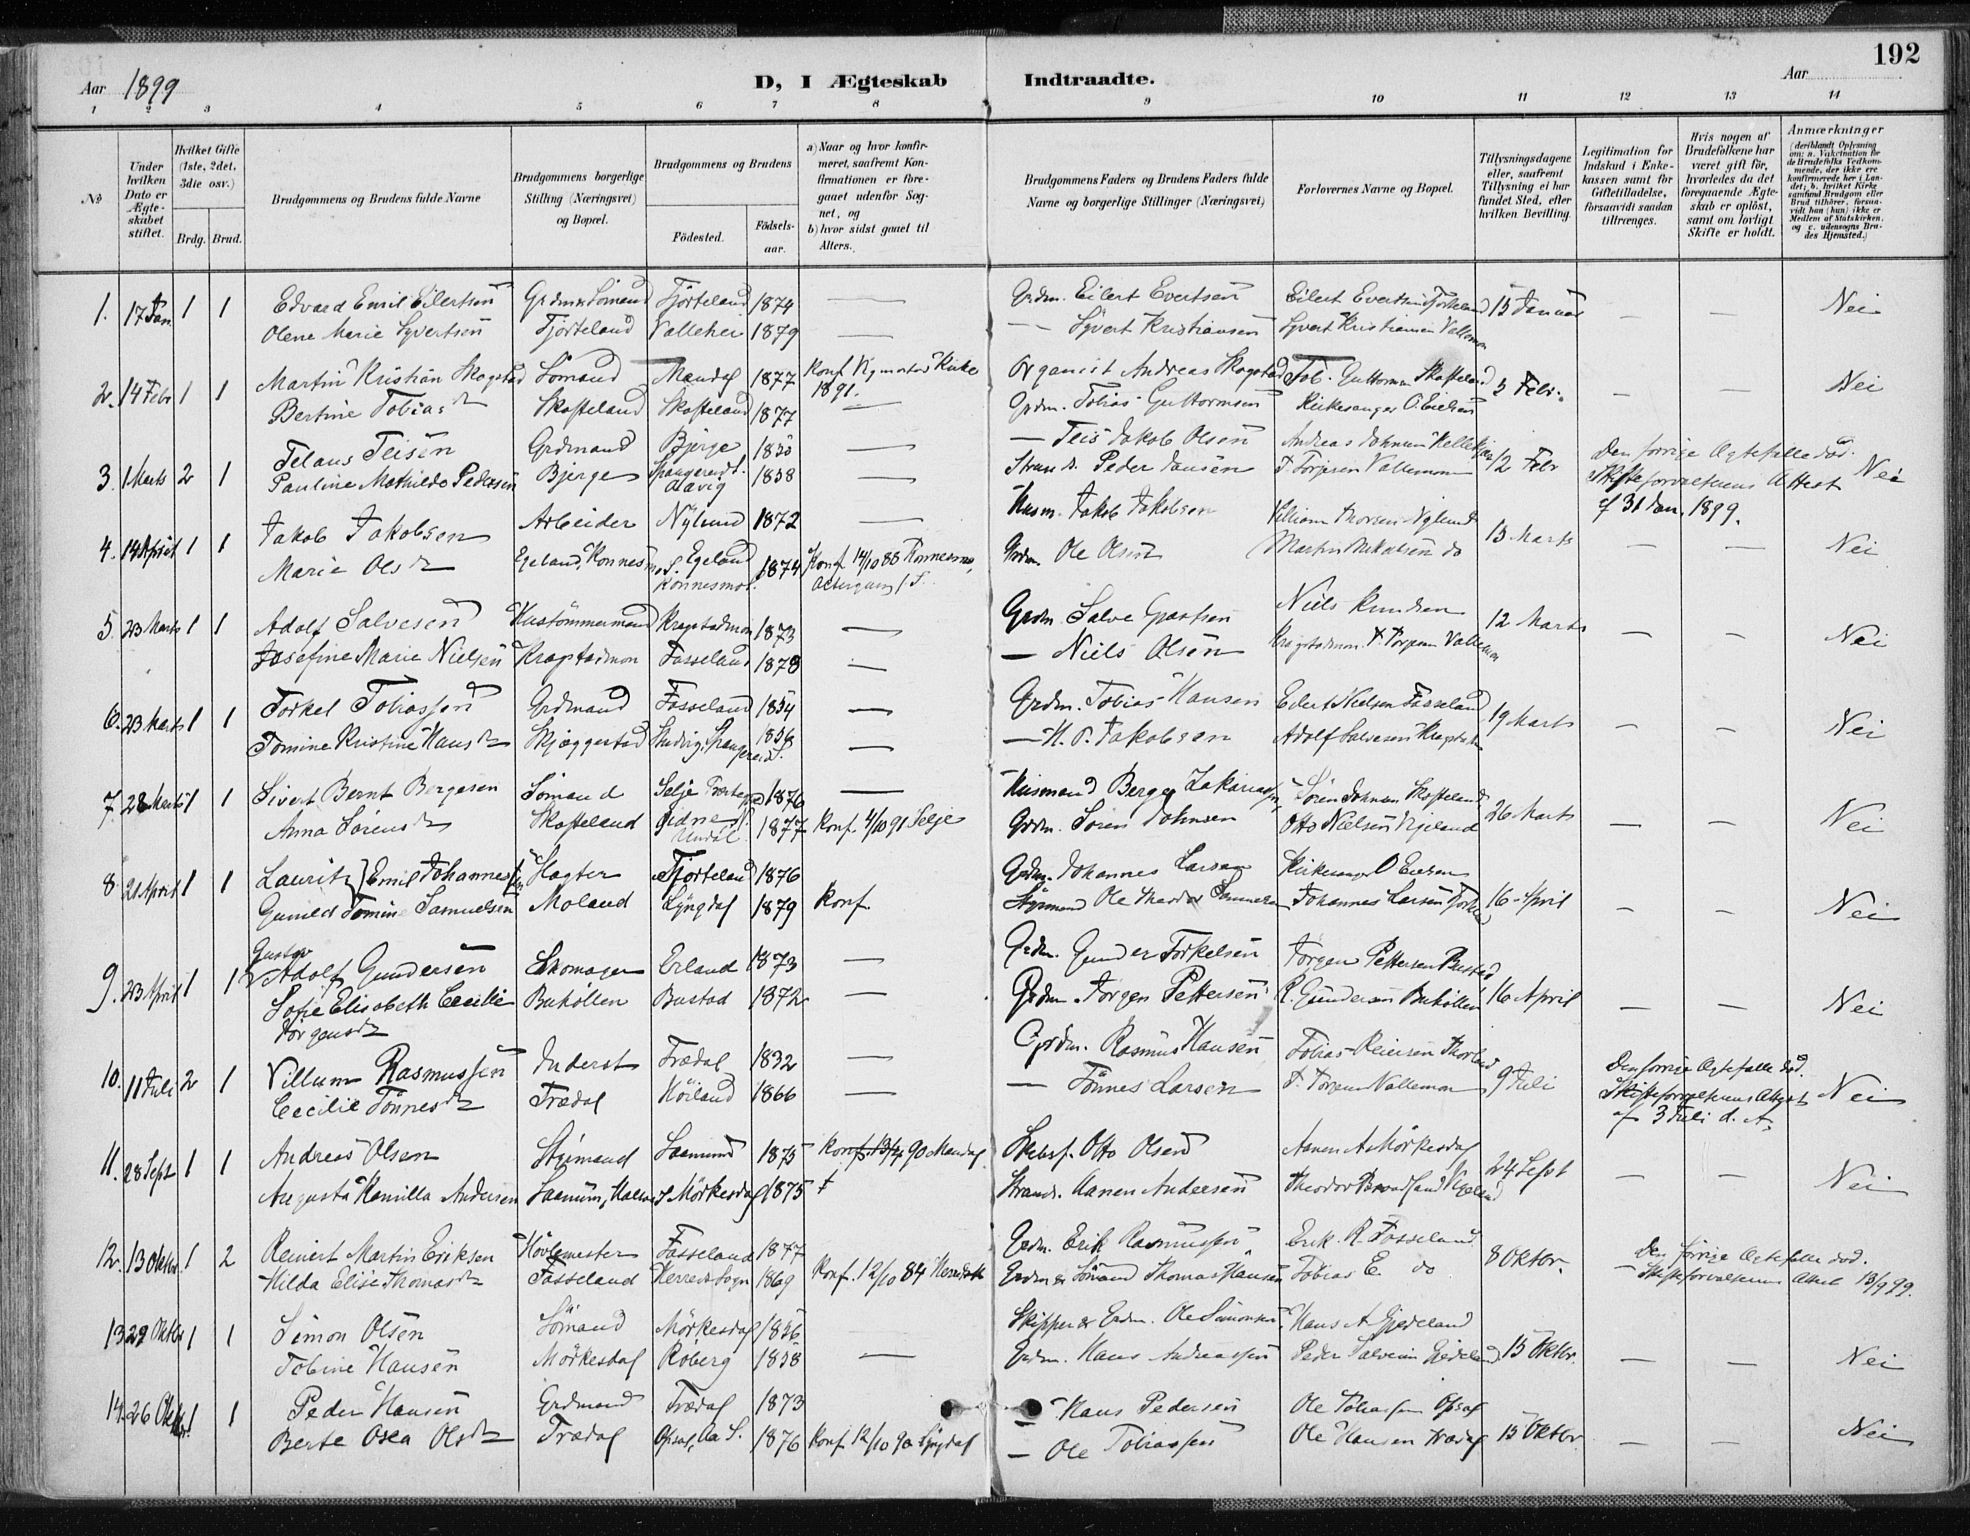 192
Aar 1899
D, I Ægteskab Indtraadte.
Aar
1 2 3 4 5 6 7 8 9 10 11 12 13 14
№
Under hvilken Dato er Ægteskabet stiftet.
Hvilket Gifte (1ste, 2det, 3die osv.)
Brdg. Brud.
Brudgommens og Brudens fulde Navne
Brudgommens borgerlige Stilling (Næringsvei) og Bopæl.
Brudgommens og Brudens
Fødested.
Fødselsaar.
a) Naar og hvor konfirmeret, saafremt Konfirmationen er foregaaet udenfor Sognet, og
b) hvor sidst gaaet til Alters.
Brudgommens Faders og Brudens Faders fulde Navne og borgerlige Stillinger (Næringsvei)
Forlovernes Navne og Bopæl.
Tillysningsdagene eller, saafremt Tillysning ei har fundet Sted, efter hvilken Bevilling.
Legitimation for Indskud i Enkekassen samt for Giftetilladelse, forsaavidt saadan tiltrænges.
Hvis nogen af Brudefolkene har været gift før, hvorledes da det foregaaende Ægteskab er opløst, samt om lovligt Skifte er holdt.
Anmærkninger (deriblandt Oplysning om: a. Vakcination for de Brudefolks Vedkommende, der ikke ere konfirmerede her i Landet; b. hvilket Kirkesamfund Brudgom eller Brud tilhører, forsaavidt han (hun) ikke er Medlem af Statskirken, og c. udensogns Brudes Hjemsted.)
1. 17 Jan 1 1 Edvard Emil Eilertsen Grdm & Sömand Tjörteland 1874 — Grdm. Eilert Evertsen Eilert Evertsen Tjorteland 15 Januar — — Nei
Olene Marie Syvertsen Tjorteland Valleher 1879 — — Syvert Kristiansen Syvert Kristiansen Vallemon
2. 14 Febr 1 1 Martin Kristian Skogstad Sömand Mandal 1877 Konf Vigmostad Kirke 1891. Organist Andreas Skogstad Tob. Guttormsen Skofteland 5 Febr. — — Nei
Bertine Tobiasdr Skofteland Skofteland 1877 — Grdm. Tobias Guttormsen Kirkesanger O. Eielsen
3. 1 Marts 2 1 Telaus Teisen Grdmand Bjerge 1850 — — Teis Jakob Olsen Andreas Johnsen 12 Febr Den forrige Ægtefælle død. Skifteforvalterens Attest af 31 Jan. 1899. Nei
Pauline Mathilde Pedersen Bjerge Spangereid S. 1858 — Strands. Peder Jansen T. Torjusen Vallemon
4. 14 April 1 1 Jakob Jakobsen Arbeider Nylund 1872 — Husm. Jakob Jakobsen Villiam Thorsen Nylund 13 Marts — — Nei
Marie Olsdr Egeland, Konnesmo Egeland Konnesmo S. 1874 Konf 14/10 88 Konnesmo, Grdm. Ole Olsen Martin Mikalsen do
5. 23 Marts 1 1 Adolf Salvesen Hustömmermand Kragstadmon 1873 — Grdm. Salve Niels Knudsen 12 Marts — — Nei
Josefine Marie Nielsen Kragstadmon Fasseland 1878 — — Niels Olsen Kragstadmon. T. Torjusen Vallemon
6. 23 Marts 1 1 Torkel Tobiassen Grdmand Fasseland 1854 — Grdm. Tobias Hansen Eilert Nielsen Fasseland 19 Marts — — Nei
Tomine Kristine Hansdr Skjæggestad Spangereid S. 1856 — — H. P. Jakobsen Adolf Salvesen
7. 28 Marts 1 1 Sivert Bernt Bergesen Sömand Selje 1876 — Husmand Berge Zakariasen Sören Johnsen Skofteland 26 Marts — — Nei
Anna Sörensdr Skofteland Undal 1877 Konf 4/10 91 Selje Grdm. Sören Johnsen Otto Nielsen Vigeland
8 21 April 1 1 Lauritz Emil Johannessen Hagter Tjorteland 1876 Grdm. Johannes Larsen Kirkesanger O Eielsen 16 April — — Nei
Gunild Tomine Samuelsen Moland Lyngdal 1879 Konf. Styrmand Ole Theodor Johannes Larsen Tjorteland
9. 23 April 1 1 Gustav Adolf Gundersen Skomager Erland 1873 — Grdm. Gunder Torkelsen Jörgen Pettersen Bustad 16 April — — Nei
Sofie Elisabeth Cecilie Jörgensdr Buhöllen Bustad 1872 — Grdm. Jörgen Pettersen R. Gundersen Buhöllen
10. 11 Juli 2 1 Villum Rasmussen Inderst Trædal 1832 — Grdm. Rasmus Hansen Tobias Reiersen 9 Juli Den forrige Ægtefælle død. Skifteforvalterens Attest af 3 Juli d. A. Nei
Cecilie Tönnesdr Trædal Höiland 1866 — — Tönnes Larsen T. Torjusen Vallemon
11. 28 Sept 1 1 Andreas Olsen Strimand Saanum 1875 Konf 13/4 90 Mandal Skibsf. Otto Olsen Aanen A Mörkesdal 24 Sept — — Nei
Augusta Kamilla Andersen Saanum, Halsaa S. Mörkesdal 1875 Strands. Hanen Andersen Theodor Vigeland
12. 13 Oktbr. 1 2 Reinert Martin Eriksen Hövlemester Fasseland 1877 Grdm. Erik Rasmussen Erik R. Fosseland 8 Oktbr. Den forrige Ægtefælle død. Skifteforvalterens Attest 13/9 99.
Hilda Elise Thomasdr Fasseland Herred Sogn 1869 Konf. 12/10 84 Herred Grdm & Sömand Thomas Hansen Tobias E do
13 29 Oktbr 1 1 Simon Olsen Sömand Mörkesdal 1856 Skipper & Grdm. Ole Simonsen Hans A Gjedeland 15 Oktbr. — — Nei
Tobine Hansen Mörkesdal Roberg 1858 — Grdm. Hans Andreassen Peder Salvesen Gjedeland
14. 26 Oktbr. 1 1 Peder Hansen Grdmand Trædal 1873 — Hans Pedersen Ole Tobiassen Opsal 15 Oktbr. — — Nei
Berte Osea Olsdr Trædal Opsal, Aa S. 1876 Konf 12/10 90 Lyngdal — Ole Tobiassen Ole Hansen Trædal